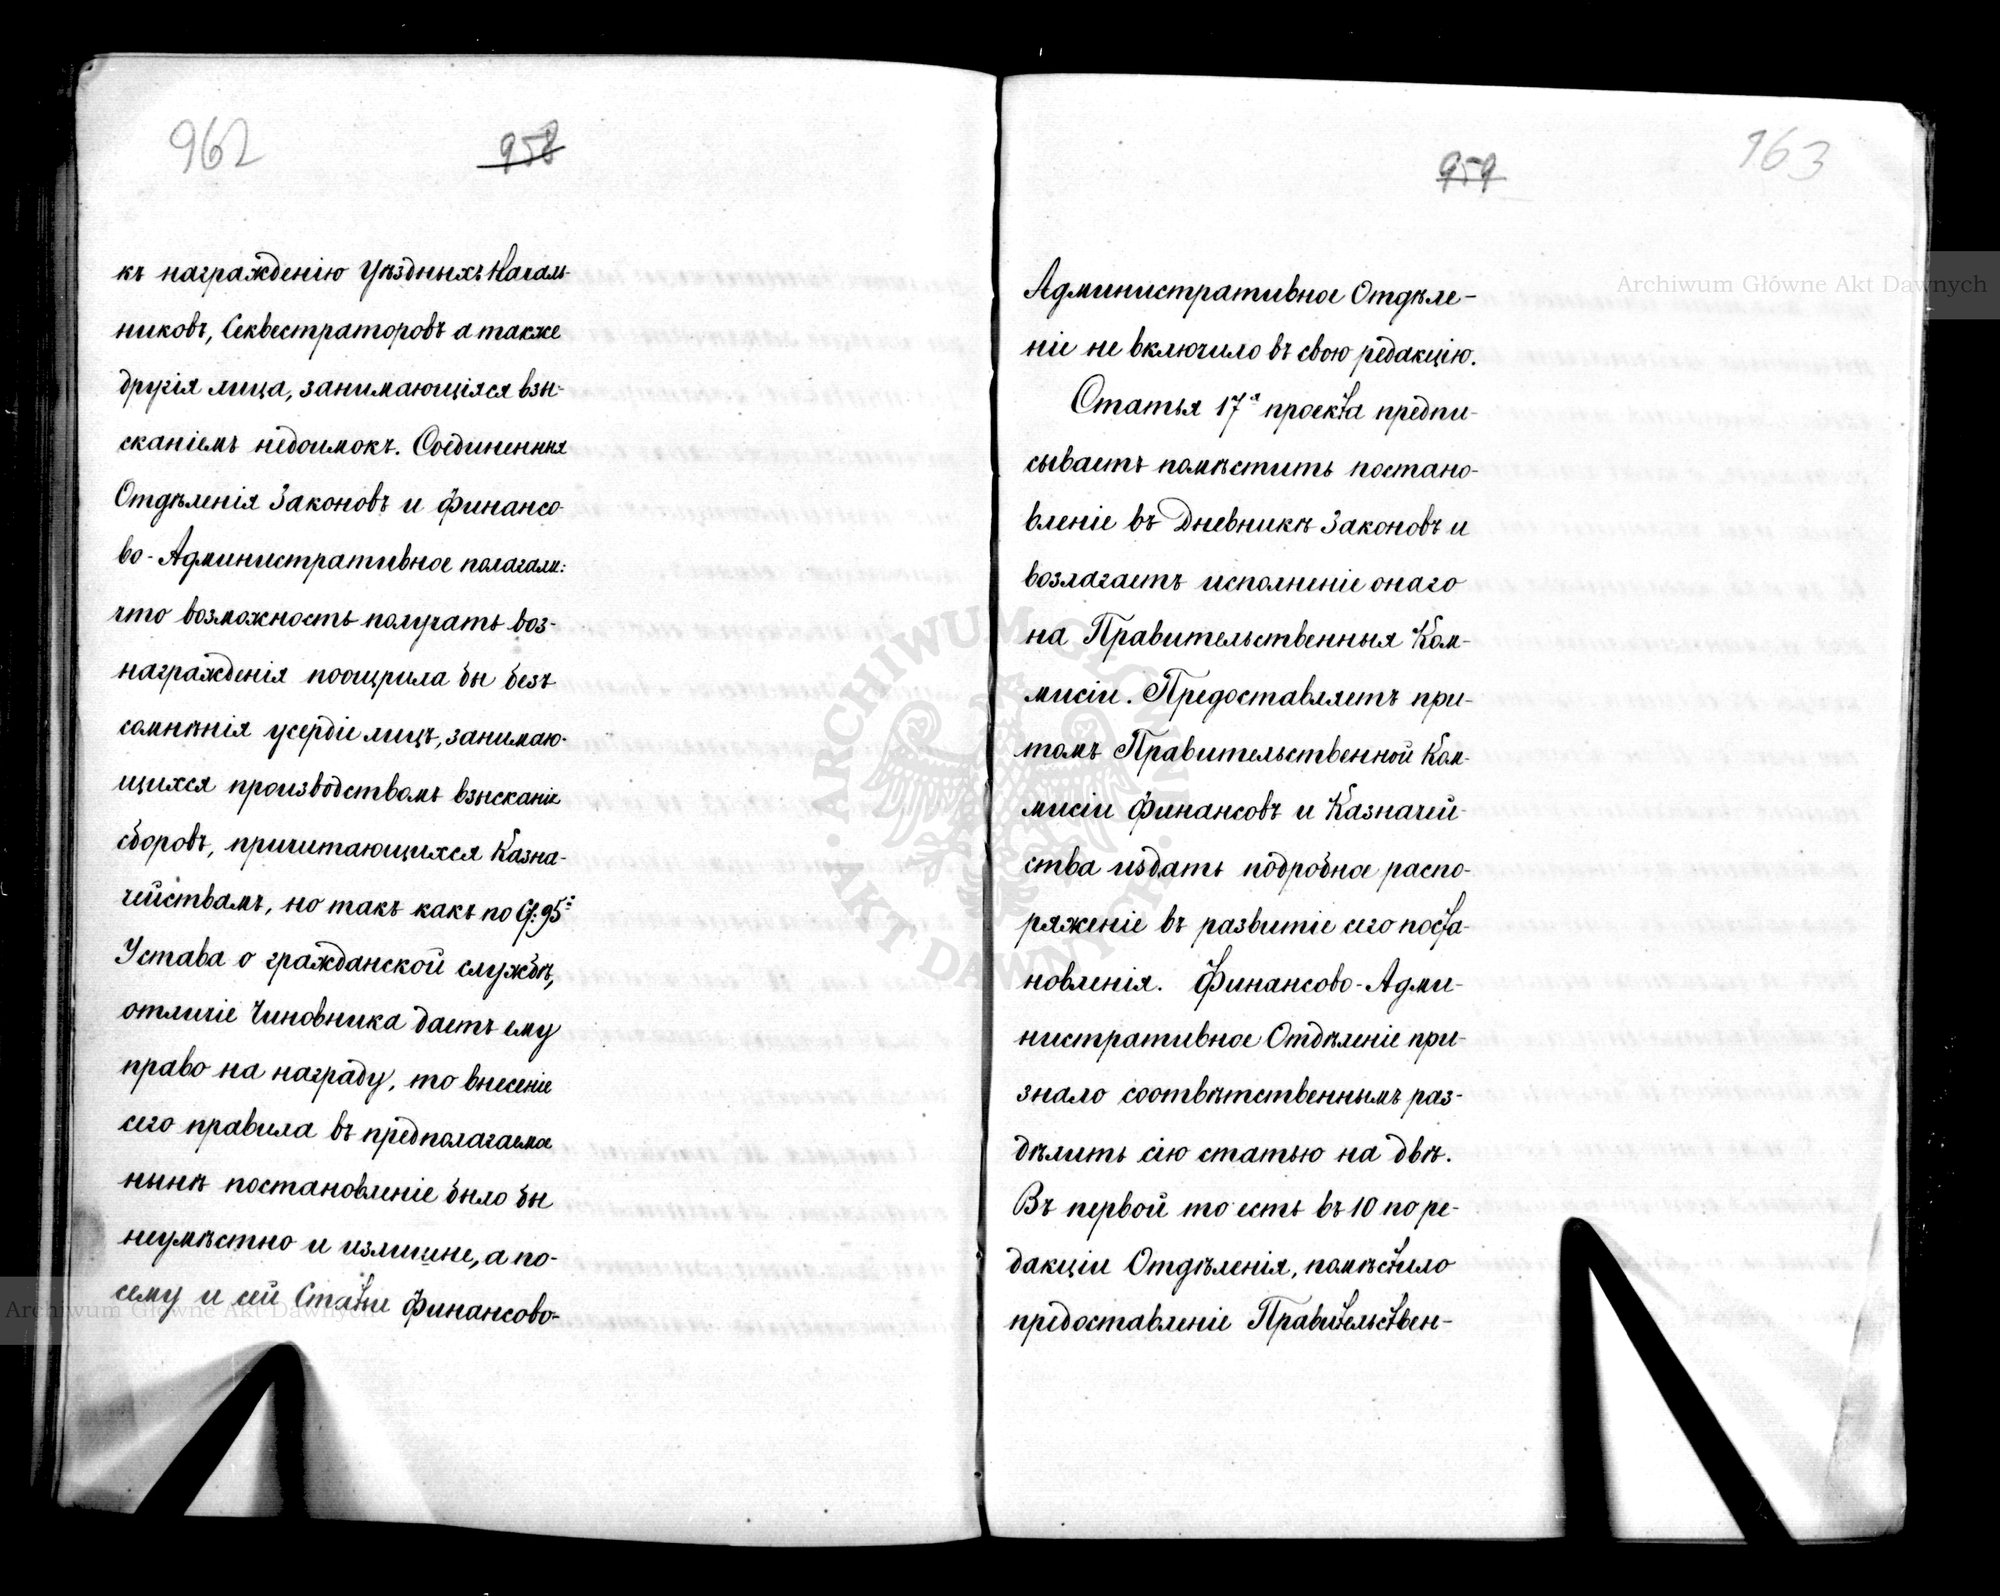 962
958
къ награжденію Уѣздныхъ Началь-
никовъ, Секвестраторовъ а также
другія лица, занимающіяся взы-
сканіемъ недоимокъ. Соединенныя
Отдѣленія Законовъ и Финансо-
во-Административное полагали:
что возможность получать воз-
награжденія поощрила бы безъ
сомнѣнія усердіе лицъ, занимаю-
щихся производствомъ взысканіе
сборовъ, причитающихся Казна-
чействамъ, но такъ какъ по Ст: 95й
Устава о гражданской службѣ,
отличіе Чиновника даетъ ему
право на награду, то внесеніе
сего правила въ предполагаемое
нынѣ постановленіе было бы
неумѣстно и излишне, а по-
сему и сей Статьи Финансово-
963
959
Административное Отдѣле-
ніе не включило въ свою редакцію.
Статья 17я проекта предпи-
сываетъ помѣстить постано-
вленіе въ Дневникѣ Законовъ и
возлагаетъ исполненіе онаго
на Правительственныя Ком-
мисіи. Предоставляетъ при-
томъ Правительственной Ком-
мисіи Финансовъ и Казначей-
ства издать подробное распо-
ряженіе въ развитіе сего поста-
новленія. Финансово-Адми-
нистративное Отдѣленіе при-
знало соотвѣтственнымъ раз-
дѣлить сію статью на двѣ.
Въ первой то есть въ 10 по ре-
дакціи Отдѣленія, помѣстило
предоставленіе Правительствен-
Archiwum Główne Akt Dawnych
Archiwum Główne Akt Dawnych
ARCHIWUM GŁÓWNE AKT DAWNYCH